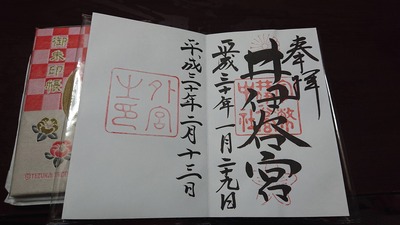 奉拝
井伊谷宮
平成三十年一月二十九日
外宮之印
平成三十年二月十三日
御朱印帳